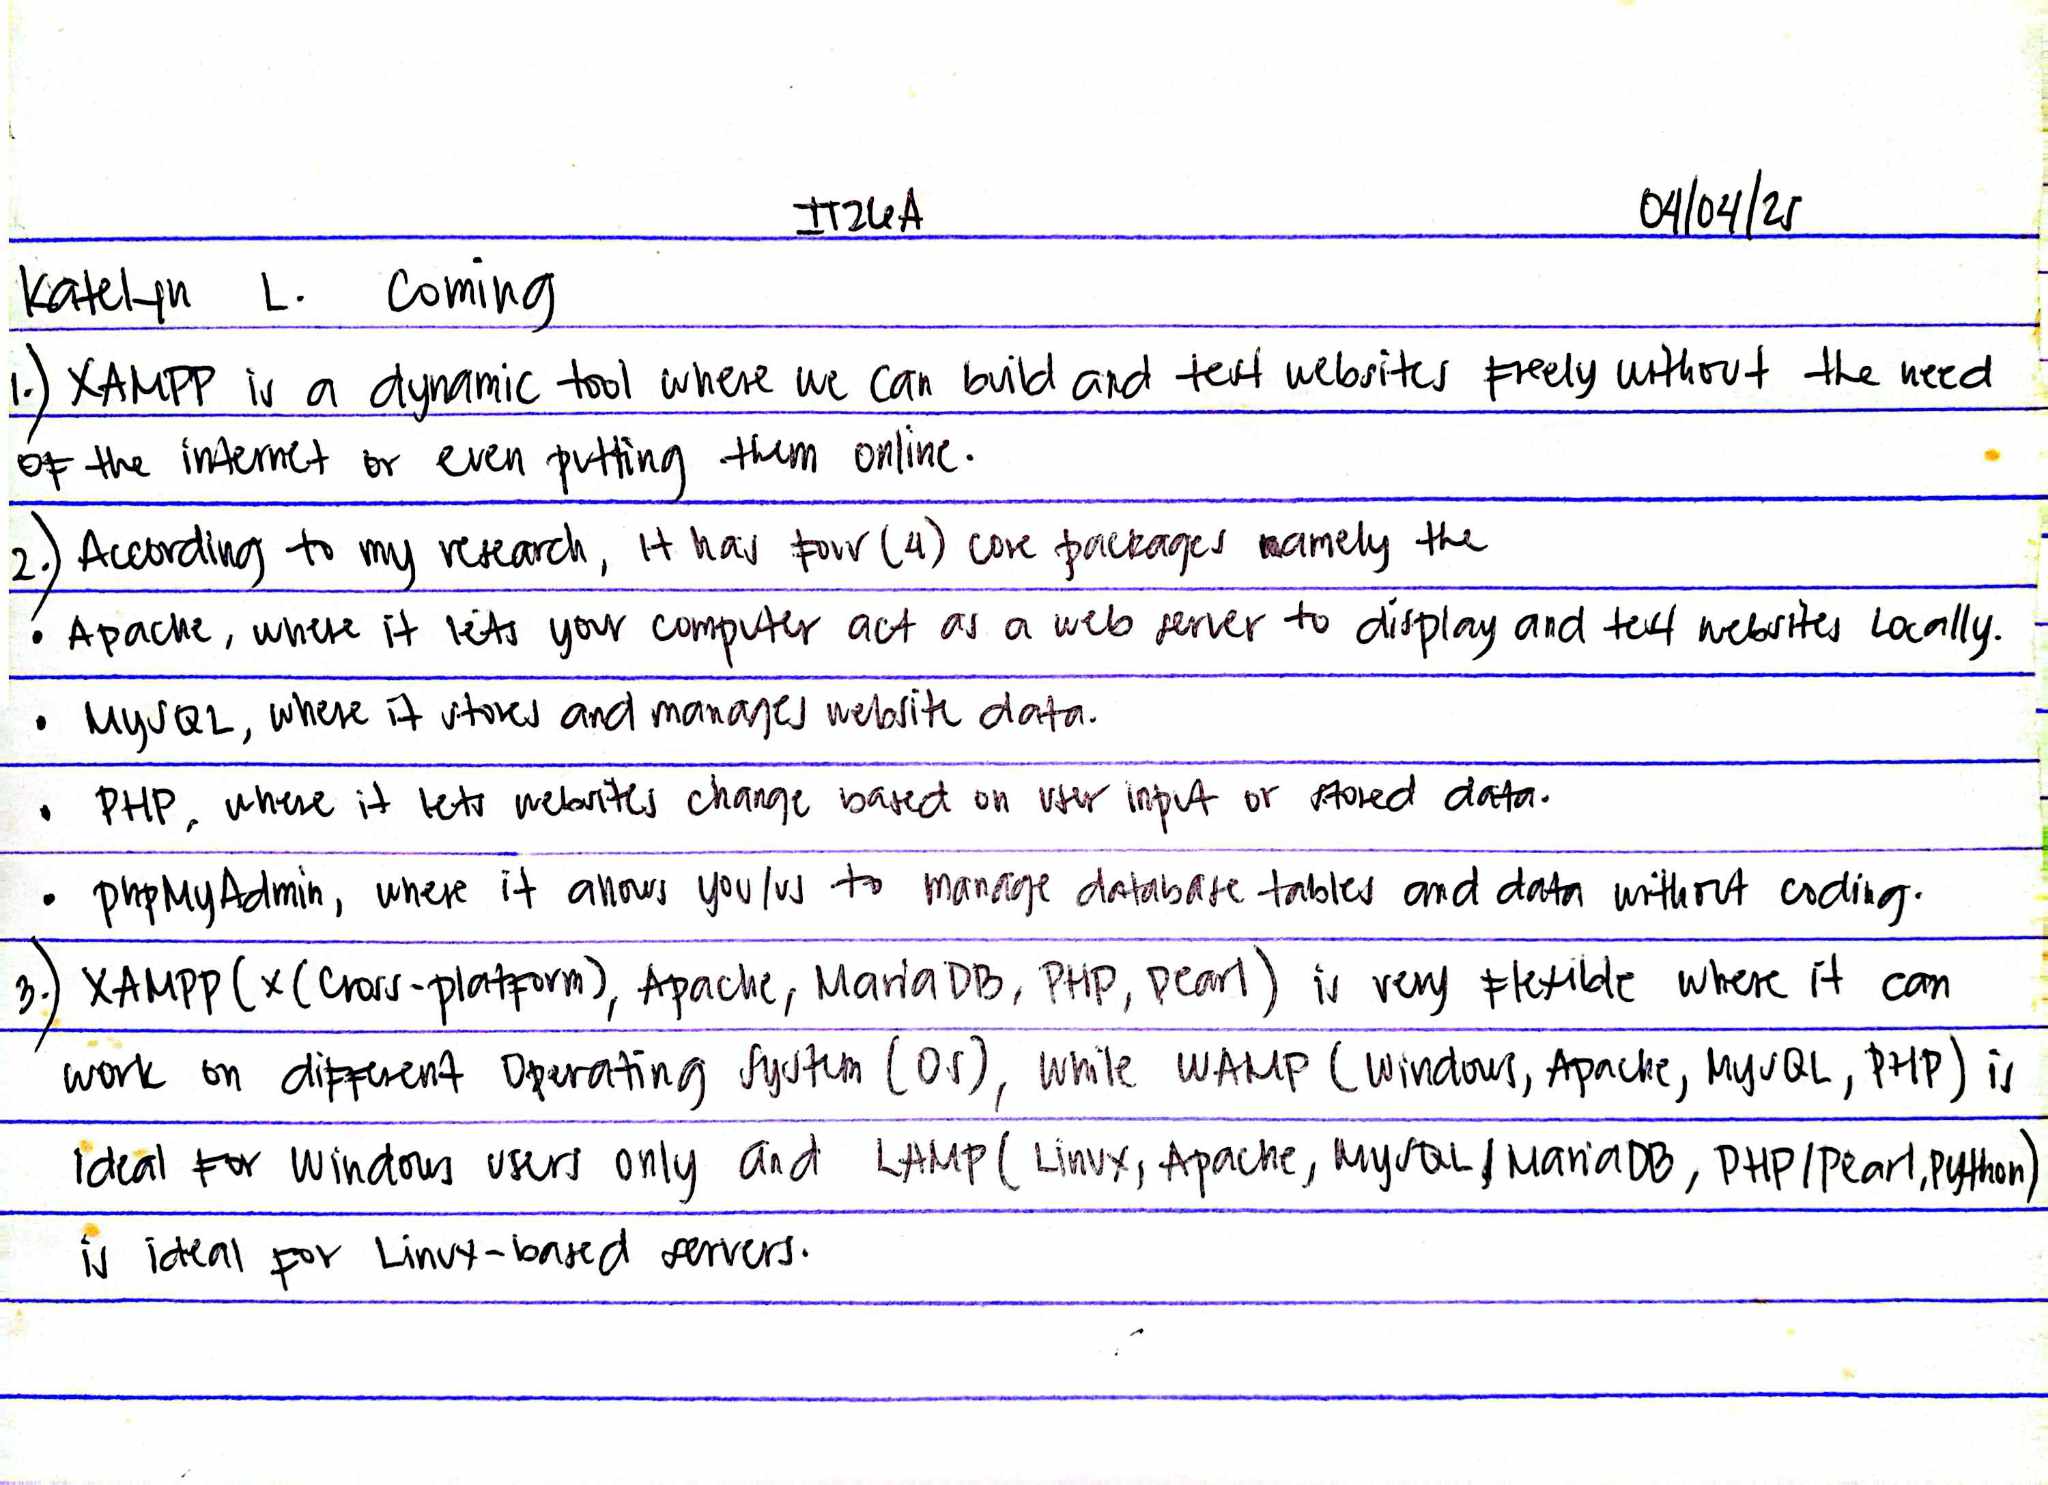 IT26A 04/04/25
Katelyn L. Coming
1.) XAMPP is a dynamic tool where we can build and test websites freely without the need
of the internet or even putting them online.
2.) According to my research, it has four (4) core packages namely the
• Apache, where it lets your computer act as a web server to display and test websites locally.
• MySQL, where it stores and manages website data.
• PHP, where it lets websites change based on user input or stored data.
• phpMyAdmin, where it allows you/us to manage database tables and data without coding.
3.) XAMPP (X (Cross-platform), Apache, MariaDB, PHP, Pearl) is very flexible where it can
work on different Operating System (OS), while WAMP (Windows, Apache, MySQL, PHP) is
ideal for Windows users only and LAMP (Linux, Apache, MySQL/MariaDB, PHP/Pearl, Python)
is ideal for Linux-based servers.